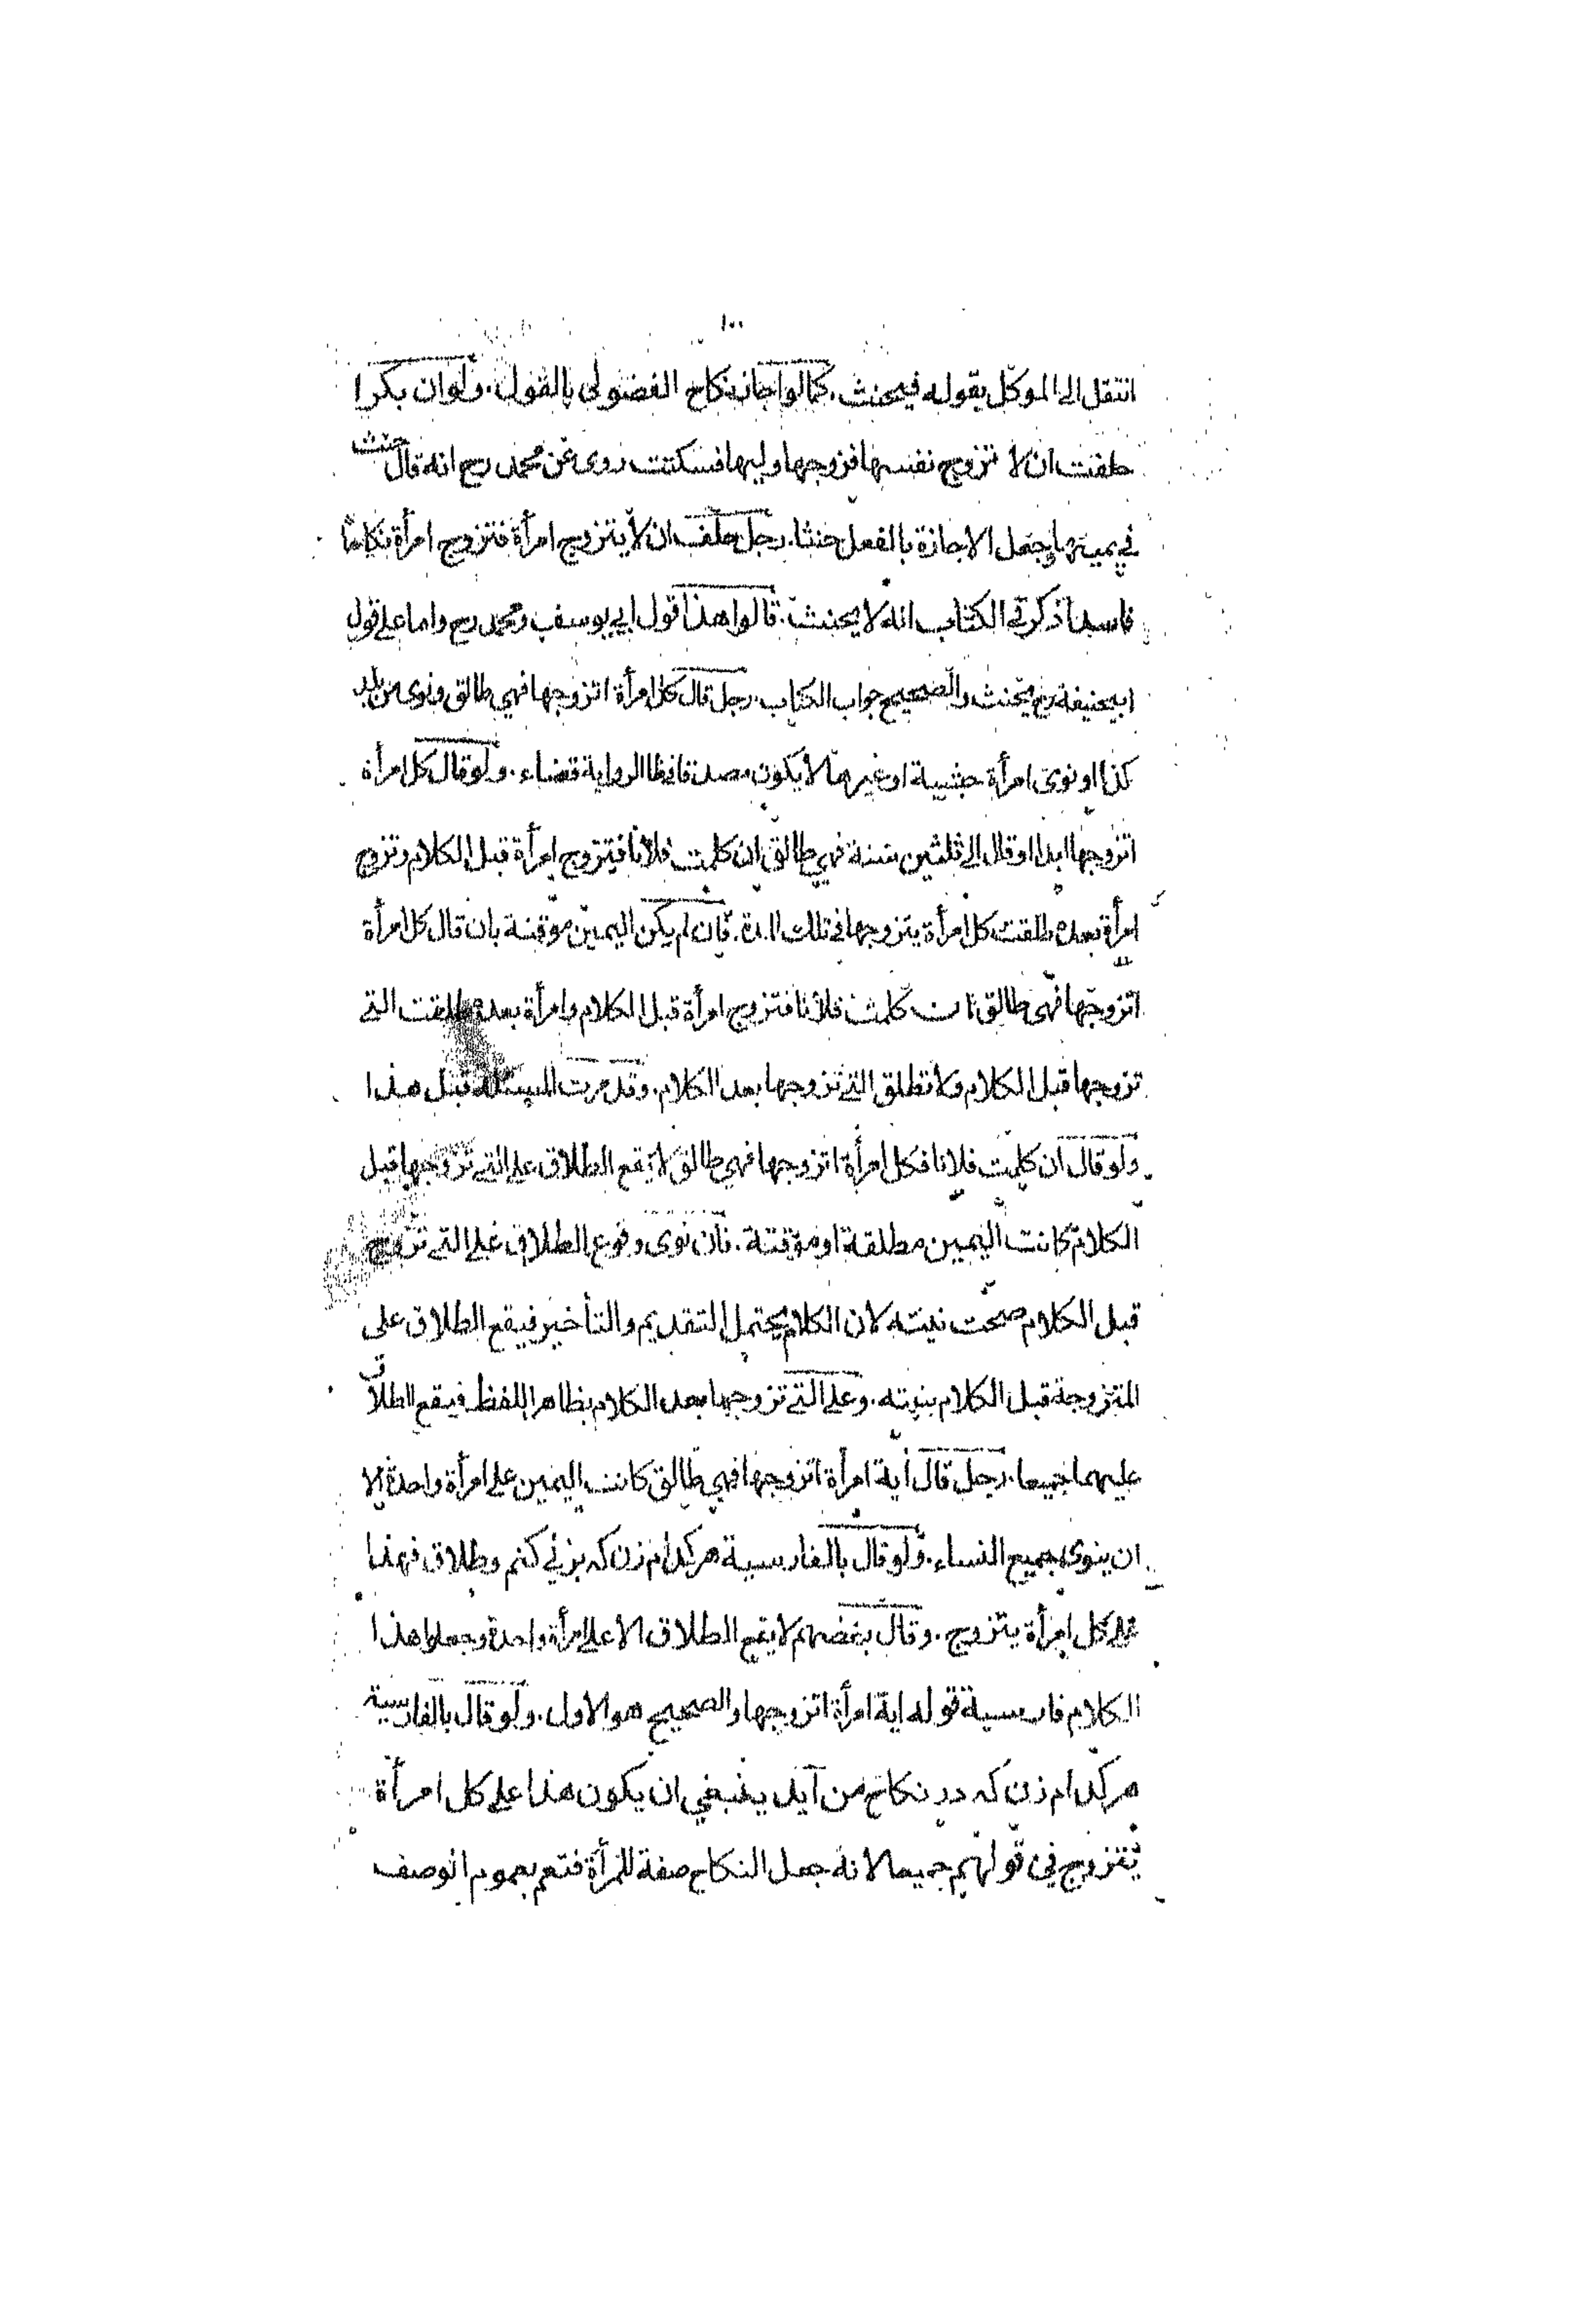 ١٠٠
انتقل الى الموكل بقوله فيحنث. كما لو اجاز نكاح الفضولى بالقول. ولو ان بكرا
حلفت ان لا تزوج نفسها فزوجها وليها فسكتت روى عن محمد رح انه قال حنث
في يمينها ويجعل الاجازة بالفعل حنثا. رجل حلف ان لا يتزوج امرأة فتزوج امرأة نكاحا
فاسدا ذكر في الكتاب انه لا يحنث. قالوا هذا قول ابي يوسف ومحمد رح واما على قول
ابيحنيفة رح يحنث والصحيح جواب الكتاب. رجل قال كل امرأة اتزوجها فهي طالق ونوى من بلد
كذا او نوى امرأة حبشية او غيرها لا يكون مصدقا في ظا الرواية قضاء. ولو قال كل امرأة
اتزوجها ابدا او قال الى ثلثين سنة فهي طالق ان كلمت فلانا فيتزوج امرأة قبل الكلام وتزوج
امرأة بعده طلقت كل امرأة يتزوجها في تلك المدة. فان لم يكن اليمين موقتة بان قال كل امرأة
اتزوجها فهي طالق ان كلمت فلانا فتزوج امرأة قبل الكلام وامرأة بعده طلقت التي
تزوجها قبل الكلام ولا تطلق التي تزوجها بعد الكلام. وقد مرت المسئلة قبل هذا
ولو قال ان كلمت فلانا فكل امرأة اتزوجها فهي طالق لا يقع الطلاق على التي تزوجها قبل
الكلام كانت اليمين مطلقة او موقتة. فان نوى وقوع الطلاق على التي تزوج
قبل الكلام صحت نيته لان الكلام يحتمل التقديم والتأخير فيقع الطلاق على
المتزوجة قبل الكلام بنيته. وعلى التي تزوجها بعد الكلام بظاهر اللفظ فيقع الطلاق
عليهما جميعا. رجل قال أية امرأة اتزوجها فهي طالق كانت اليمين على امرأة واحدة الا
ان ينوى جميع النساء. ولو قال بالفارسية هر كدام زن كه بزني كنم وطلاق فهذا
على كل امرأة يتزوج. وقال بعضهم لا يقع الطلاق الا على امرأة واحدة وجعلوا هذا
الكلام فارسية قوله اية امرأة اتزوجها والصحيح هو الاول. ولو قال بالفارسية
هر كدام زن كه در نكاح من آيد ينبغي ان يكون هذا على كل امرأة
يتزوج في قولهم جميعا لانه جعل النكاح صفة للمرأة فتعم بعموم الوصف